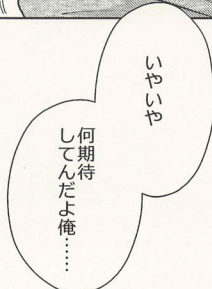 いやいや
何期待
してんだよ俺……